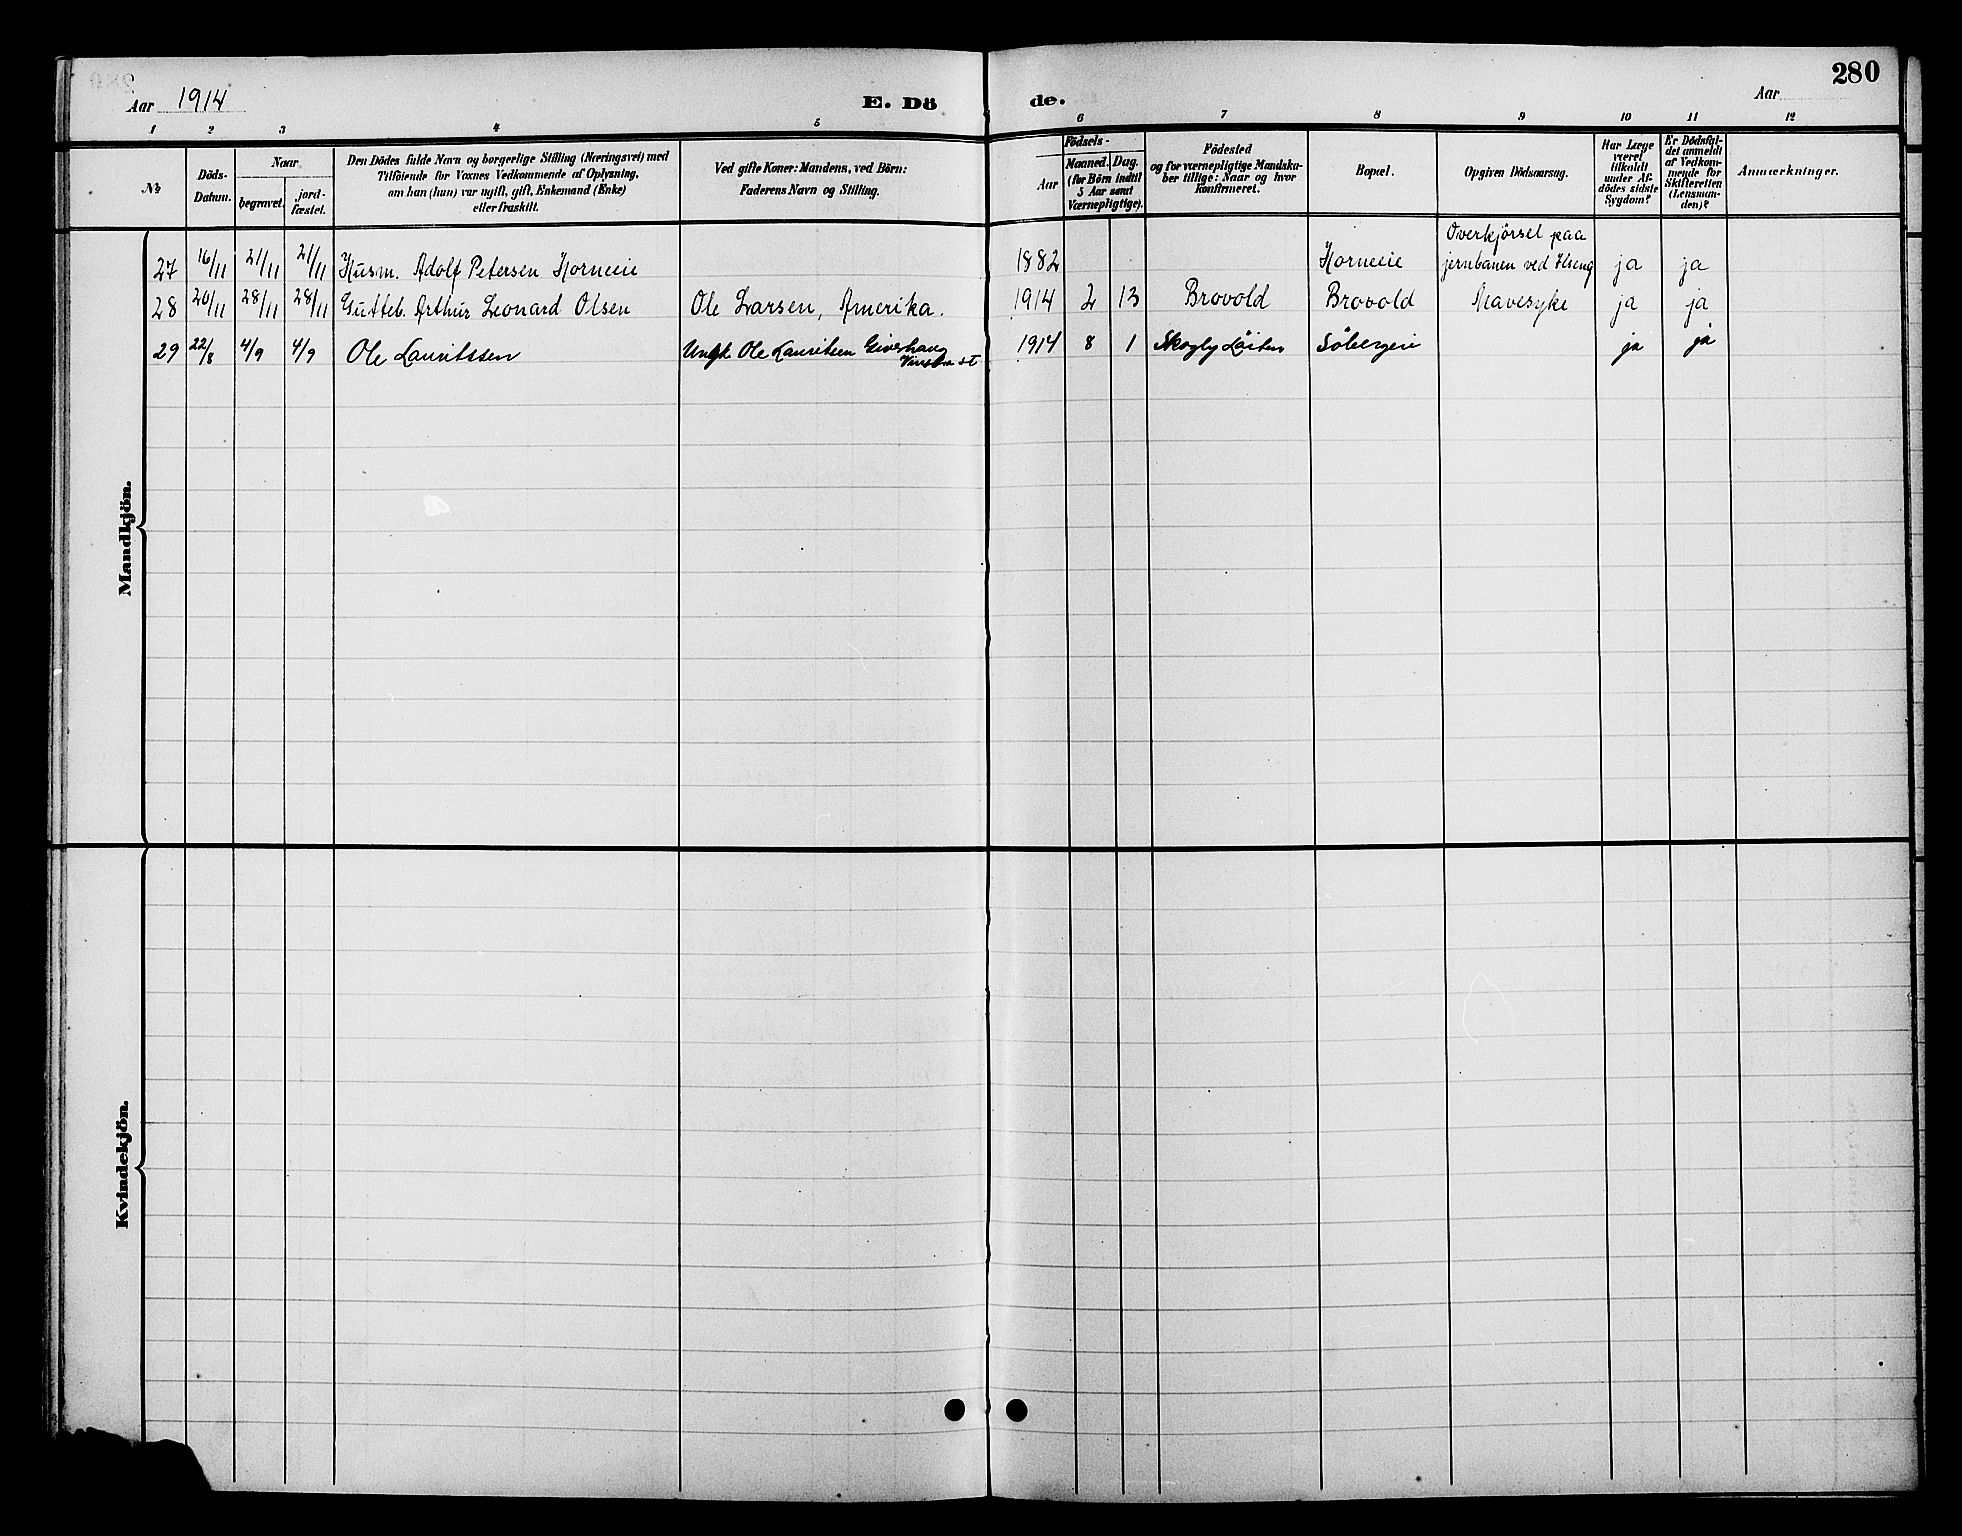 280
Aar 1914
E. Dö
de.
Aar
1 2 3 4 5 6 7 8 9 10 11 12
No
Döds-
Datum.
Naar
begravet.
jord-
fæstet.
Den Dödes fulde Navn og borgerlige Stilling (Næringsvei) med
Tilföiende for Voxnes Vedkommende af Oplysning,
om han (hun) var ugift, gift, Enkemand (Enke)
eller fraskilt.
Ved gifte Koner: Mandens, ved Börn:
Faderens Navn og Stilling.
Födsels-
Aar
Maaned. Dag.
(for Börn indtil
5 Aar samt
Værnepligtige).
Födested
og for værnepligtige Mandska-
ber tillige: Naar og hvor
konfirmeret.
Bopæl.
Opgiven Dödsaarsag.
Har Læge
været
tilkaldt
under Af-
dödes sidste
Sygdom?
Er Dödsfal-
det anmeldt
af Vedkom-
mende for
Skifteretten
(Lensman-
den)?
Anmærkninger.
Mandkjön.
27 16/11 21/11 21/11 Husm. Adolf Petersen Horneeie 1882 Horneeie Overkjørsel paa
jernbanen ved Ilseng ja ja
28 20/11 28/11 28/11 Gutteb. Arthur Leonard Olsen Ole Larsen, Amerika. 1914 2 13 Brovold Brovold Mavesyke ja ja
29 22/8 4/9 4/9 Ole Lauritssen Ungk Ole Lauritsen 1914 8 1 Skogly Løiten ja ja
Kvindekjön.